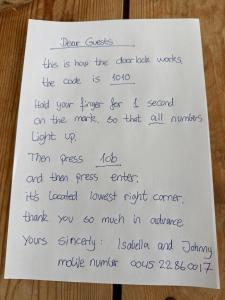 Dear Guests
this is how the doorlock works.
the code is 1010
Hold your finger for 1 second
on the mark, so that all numbers
Light up.
Then press 10b
and then press enter.
it's located lowest right corner.
thank you so much in advance.
Yours sincerly: Isabella and Johnny
mobile number 0045 22860017